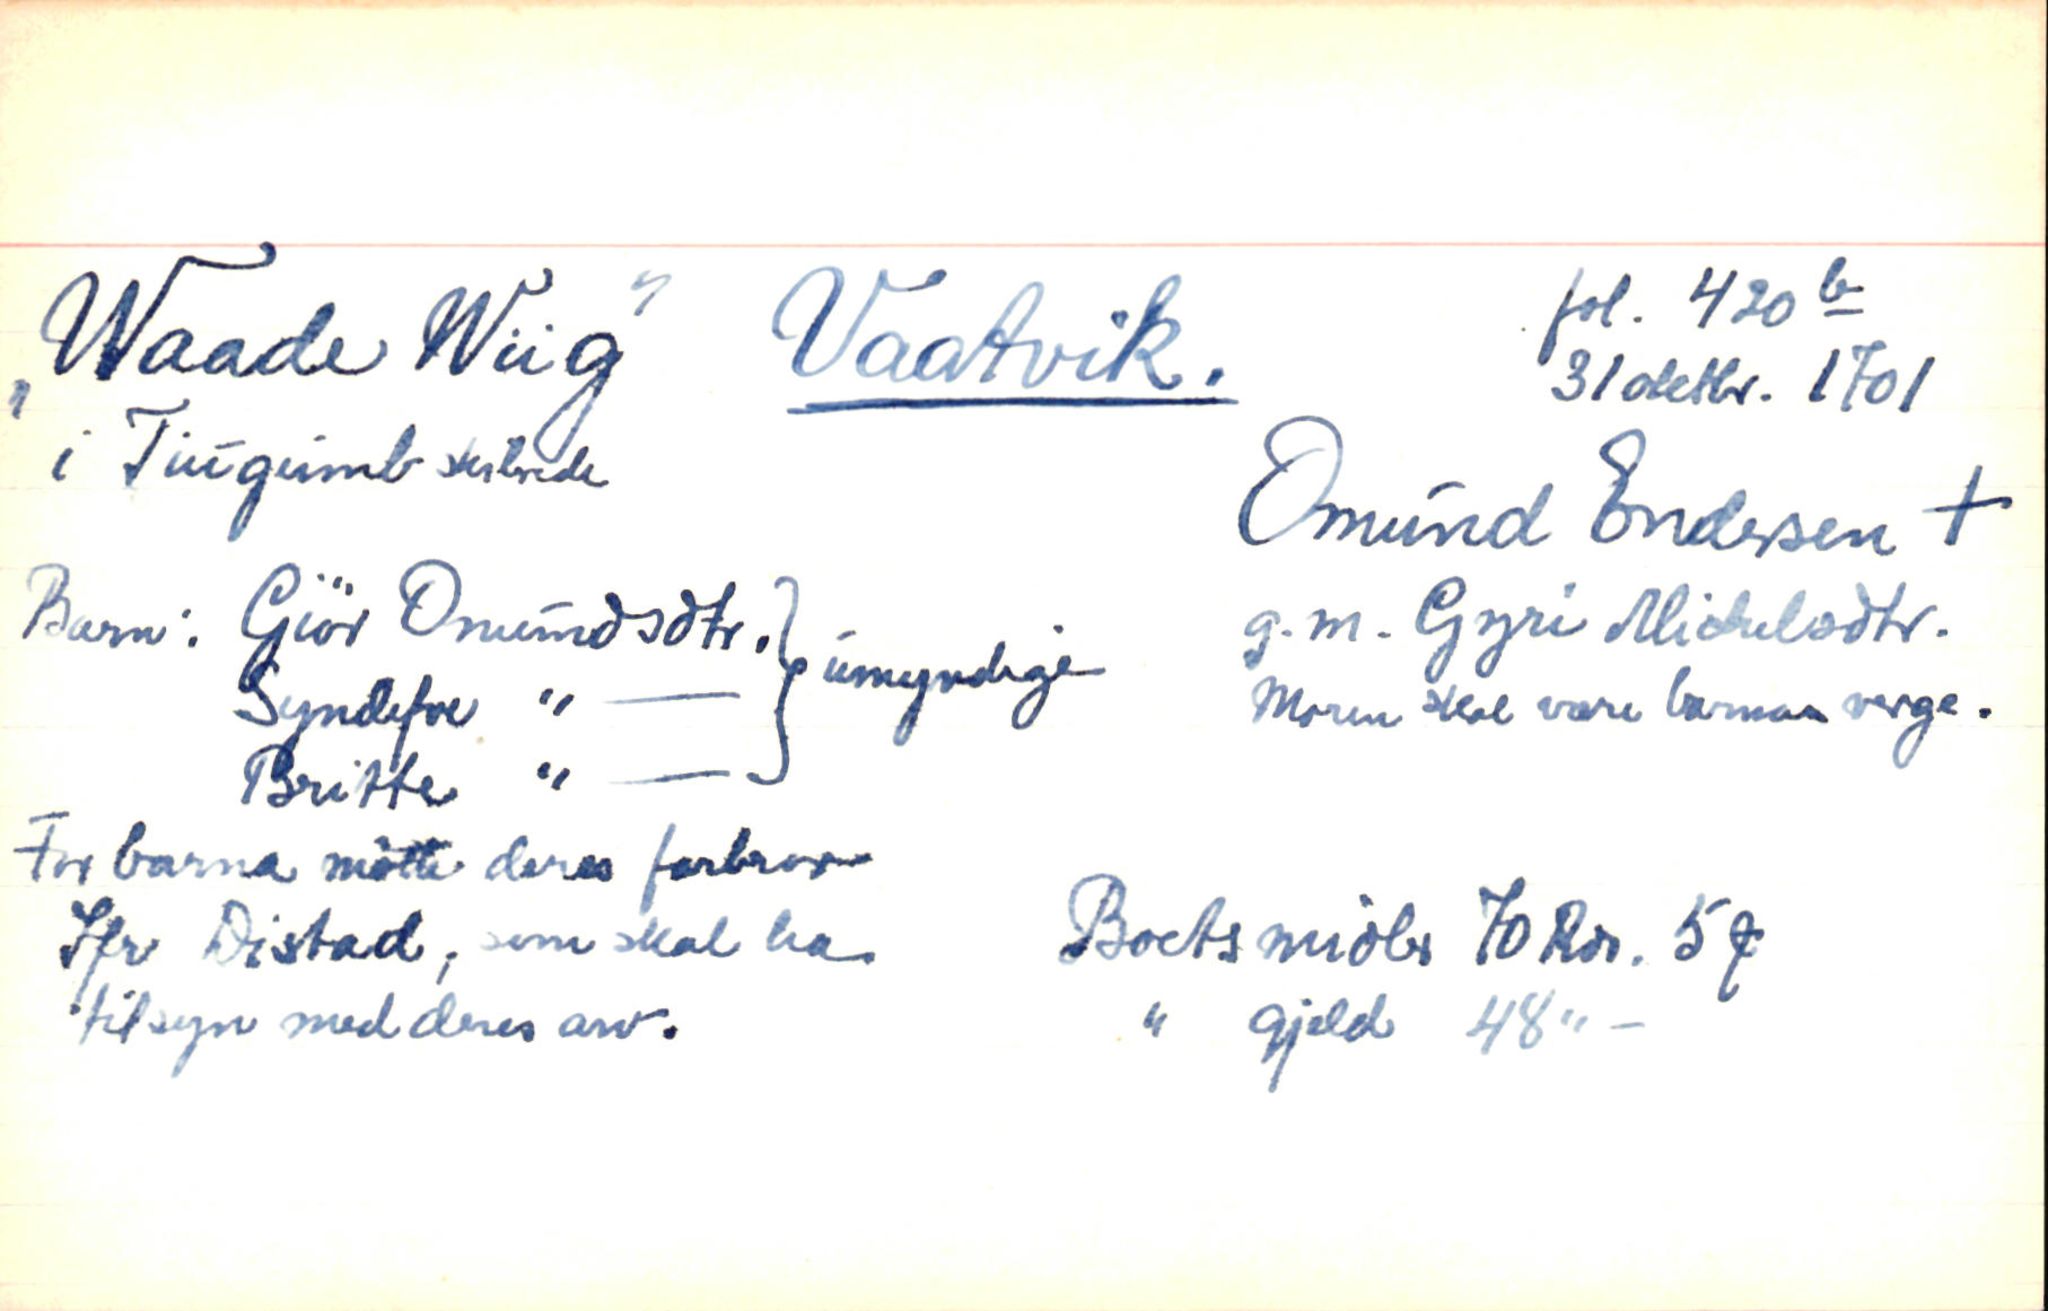 "Waade Wiig" Vaatvik.
fol. 420 b
31 oktbr. 1701
i Tiugumb skibrede
Omund Endersen +
g. m. Gyri Mickelsdtr.
Moren skal være barnas verge.
Barn: Giör Omundsdtr.
Syndefve " —
Britte " —
umyndige
For barna mötte deres farbror
Ifr Distad, som skal ha
tilsyn med deres arv.
Boets midler 70 Rdr. 5
" gjeld 48 " –